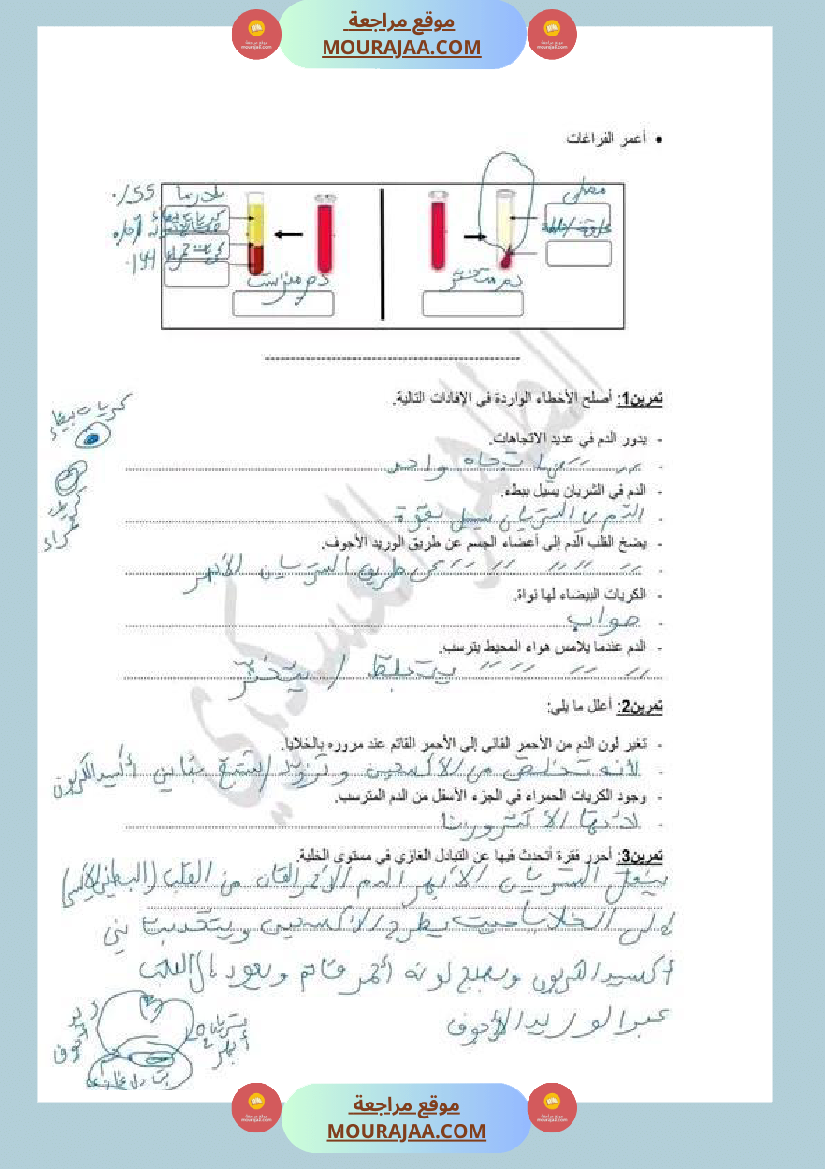 موقع مراجعة
MOURAJAA.COM
• أعمر الفراغات
مصل
كريات بيضاء
كريات حمراء
دم متخثر
دم مترسب
تمرين1: أصلح الأخطاء الواردة في الإفادات التالية.
كريات بيضاء
- يدور الدم في عديد الاتجاهات.
اتجاه واحد
- الدم في الشريان يسيل ببطء.
الدم في الشريان يسيل بقوة
- يضخ القلب الدم إلى أعضاء الجسم عن طريق الوريد الأجوف.
عن طريق الشريان الأبهر
- الكريات البيضاء لها نواة.
صواب
- الدم عندما يلامس هواء المحيط يترسب.
يتجلط / يتخثر
تمرين2: أعلل ما يلي:
- تغير لون الدم من الأحمر القاني إلى الأحمر القاتم عند مروره بالخلايا.
لأنه تخلص من الأكسجين و تزود بثاني أكسيد الكربون
- وجود الكريات الحمراء في الجزء الأسفل من الدم المترسب.
لأنها الأكثر وزنا
تمرين3: أحرر فقرة أتحدث فيها عن التبادل الغازي في مستوى الخلية.
ينقل الشريان الأبهر الدم الأحمر القاني من القلب (البطين الأيسر)
إلى الخلايا حيث يطرح الأكسجين و
أكسيد الكربون ويصبح لونه أحمر قاتم و يعود إلى القلب
عبر الوريد الأجوف
شريان أبهر
موقع مراجعة
MOURAJAA.COM